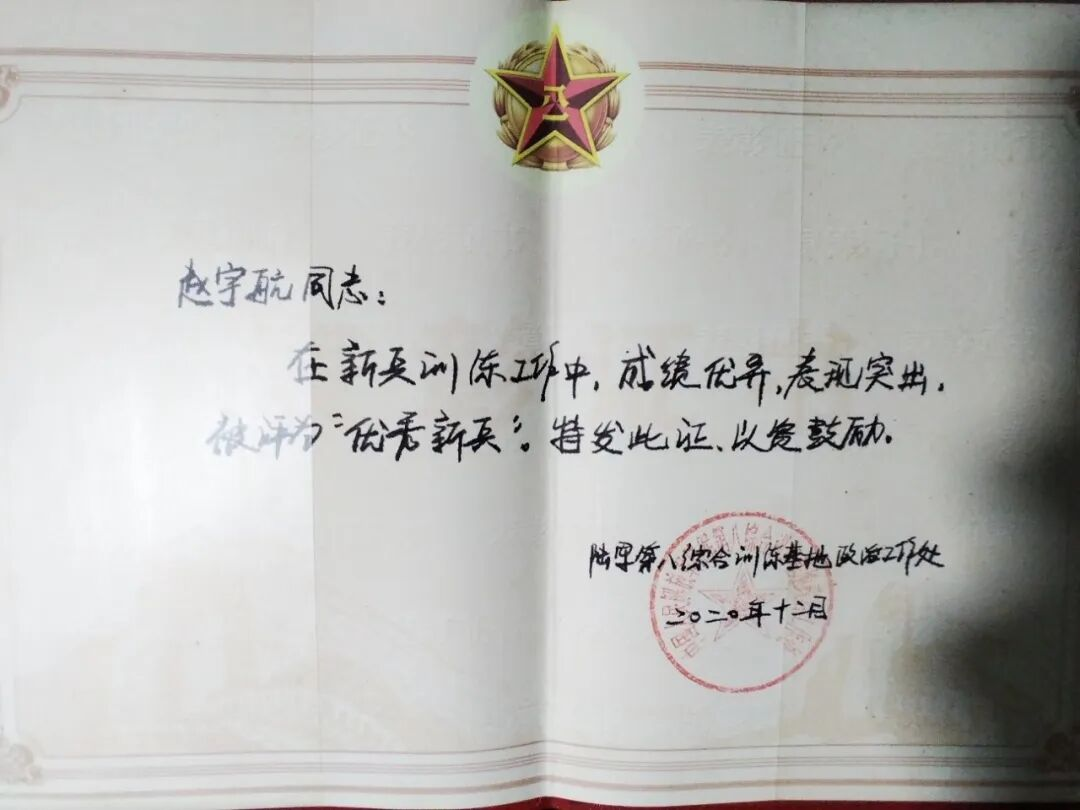 八一
赵宇航同志：
在新兵训练工作中，成绩优异，表现突出，
被评为“优秀新兵”。特发此证、以资鼓励。
陆军第八综合训练基地政治工作处
二〇二〇年十二月